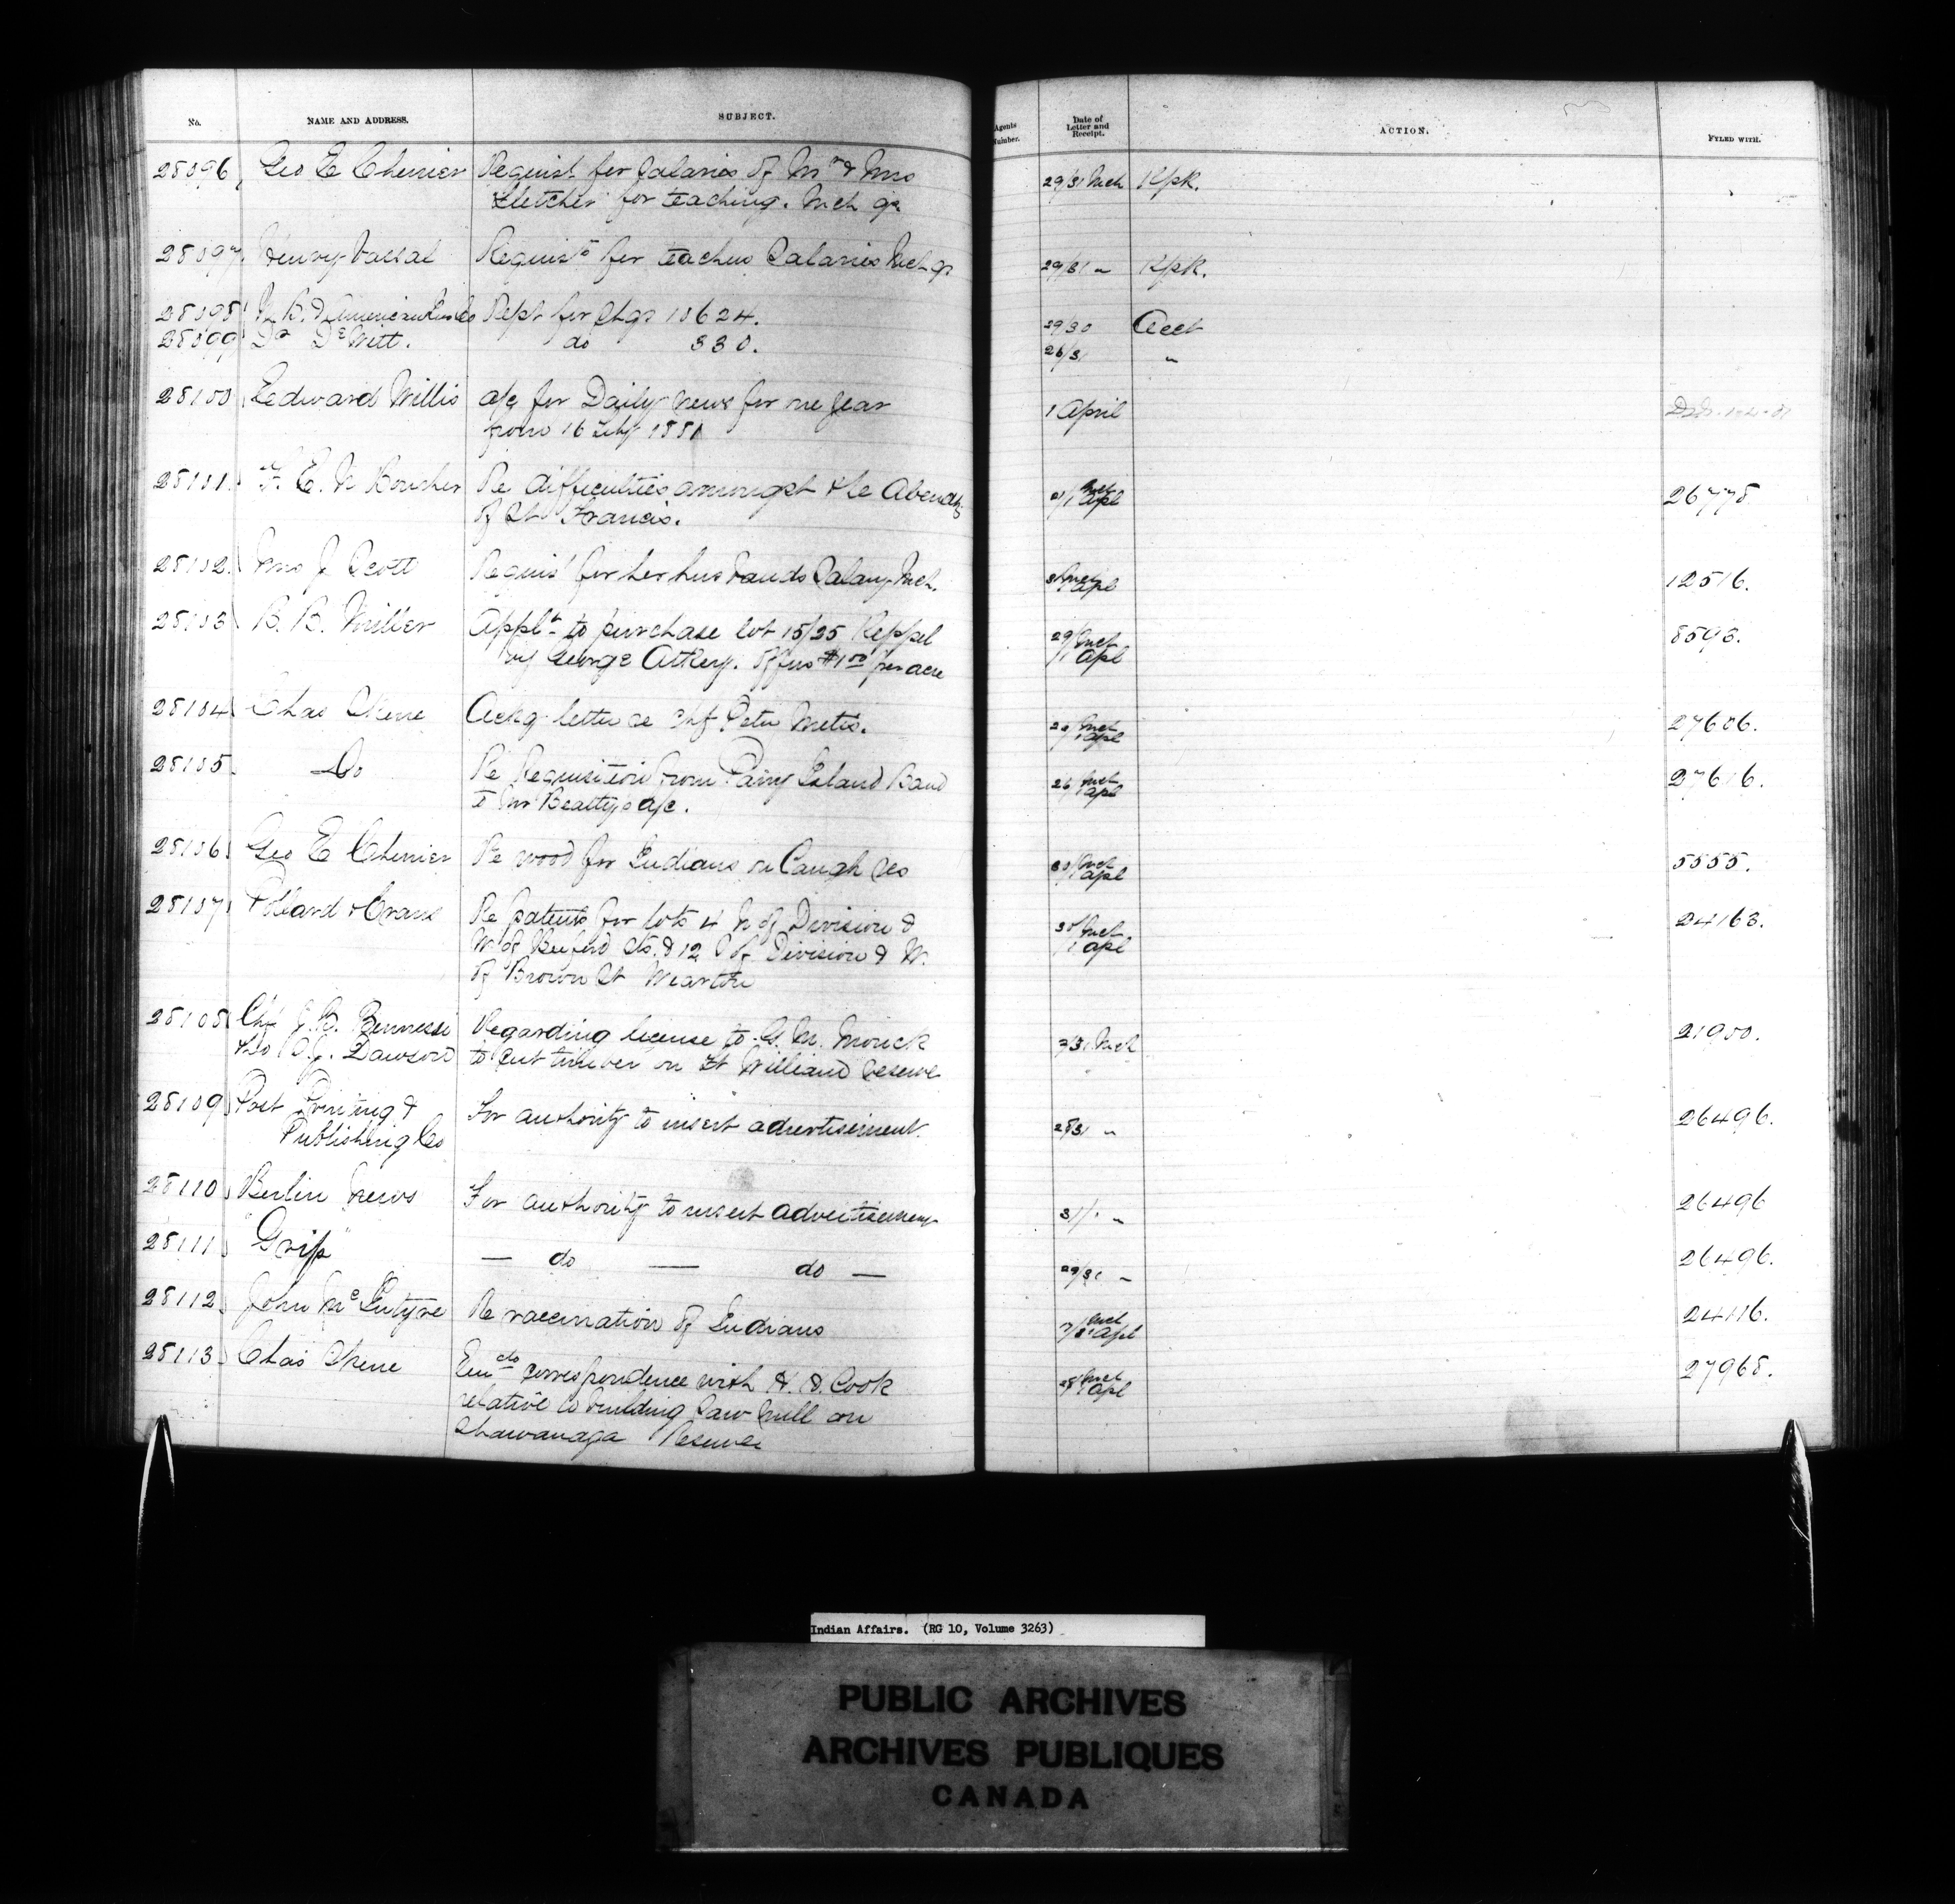 No. NAME AND ADDRESS. SUBJECT. Agents Number. Date of Letter and Receipt. ACTION. FYLED WITH.
28096 Geo E Chenier Requist for Salaries of Mr & Mrs 29/31 Mch Kpk.
Fletcher for teaching. Mch qr
28097 Henry Vassal Requisn for teachers Salaries Mch qr 29/31 " Kpk.
28098 Rept for Chqr 10624. 29/30 Acct
28099 Dr DeWitt. do 330. 26/31 "
28100 Edward Willis a/c for Daily News for one year 1 April
from 16 Feby 1881
28101 F. E. N Boucher Re difficulties amongst the Abenaq 1 Apl 26778
of St Francis.
28102 Mrs J Scott Requisn for her husbands Salary Mch. 31 Mch 1 Apl 12516.
28103 B. B. Miller Appln to purchase lot 15/25 Keppel 29/Mch 1 Apl 8593.
by George Atkey. Offers $1.00 per acre
28104 Chas Skene Ackg letter re Chf Peter Metis. 29 Mch 1 Apl 27606.
28105 Do Re Requisition from Parry Island Band 26 Mch 1 Apl 27616.
to Mr Beatty's a/c.
28106 Geo E Chenier Re wood for Indians on Caugh Res 30 Mch 1 Apl 5555.
28107 Pollard & Crans Re patents for lots 4 N of Division & 30 Mch. 1 Apl 24163.
W of Beeford Sts. & 12 S of Division & W.
of Brown St Wiarton
28108 Chf J. B. Pennessi Regarding license to G. M. Morick 31 Mch 21950.
& to Dawson to cut timber on Ft William Reserve
28109 Post Printing & For authority to insert advertisement. 28/31 " 26496.
Publishing Co
28110 Berlin News For authority to insert advertisement 31/1 " 26496
28111 "Grip" — do — do — 29/31 " 26496.
28112 John McIntyre Re vaccination of Indians Mch 1 Apl 24116.
28113 Chas Skene Encdo correspondence with H. H. Cook 28 Mch 1 Apl 27968.
relative to building Saw Mill on
Shawanaga Reserve
Indian Affairs. (RG 10, Volume 3263)
PUBLIC ARCHIVES
ARCHIVES PUBLIQUES
CANADA